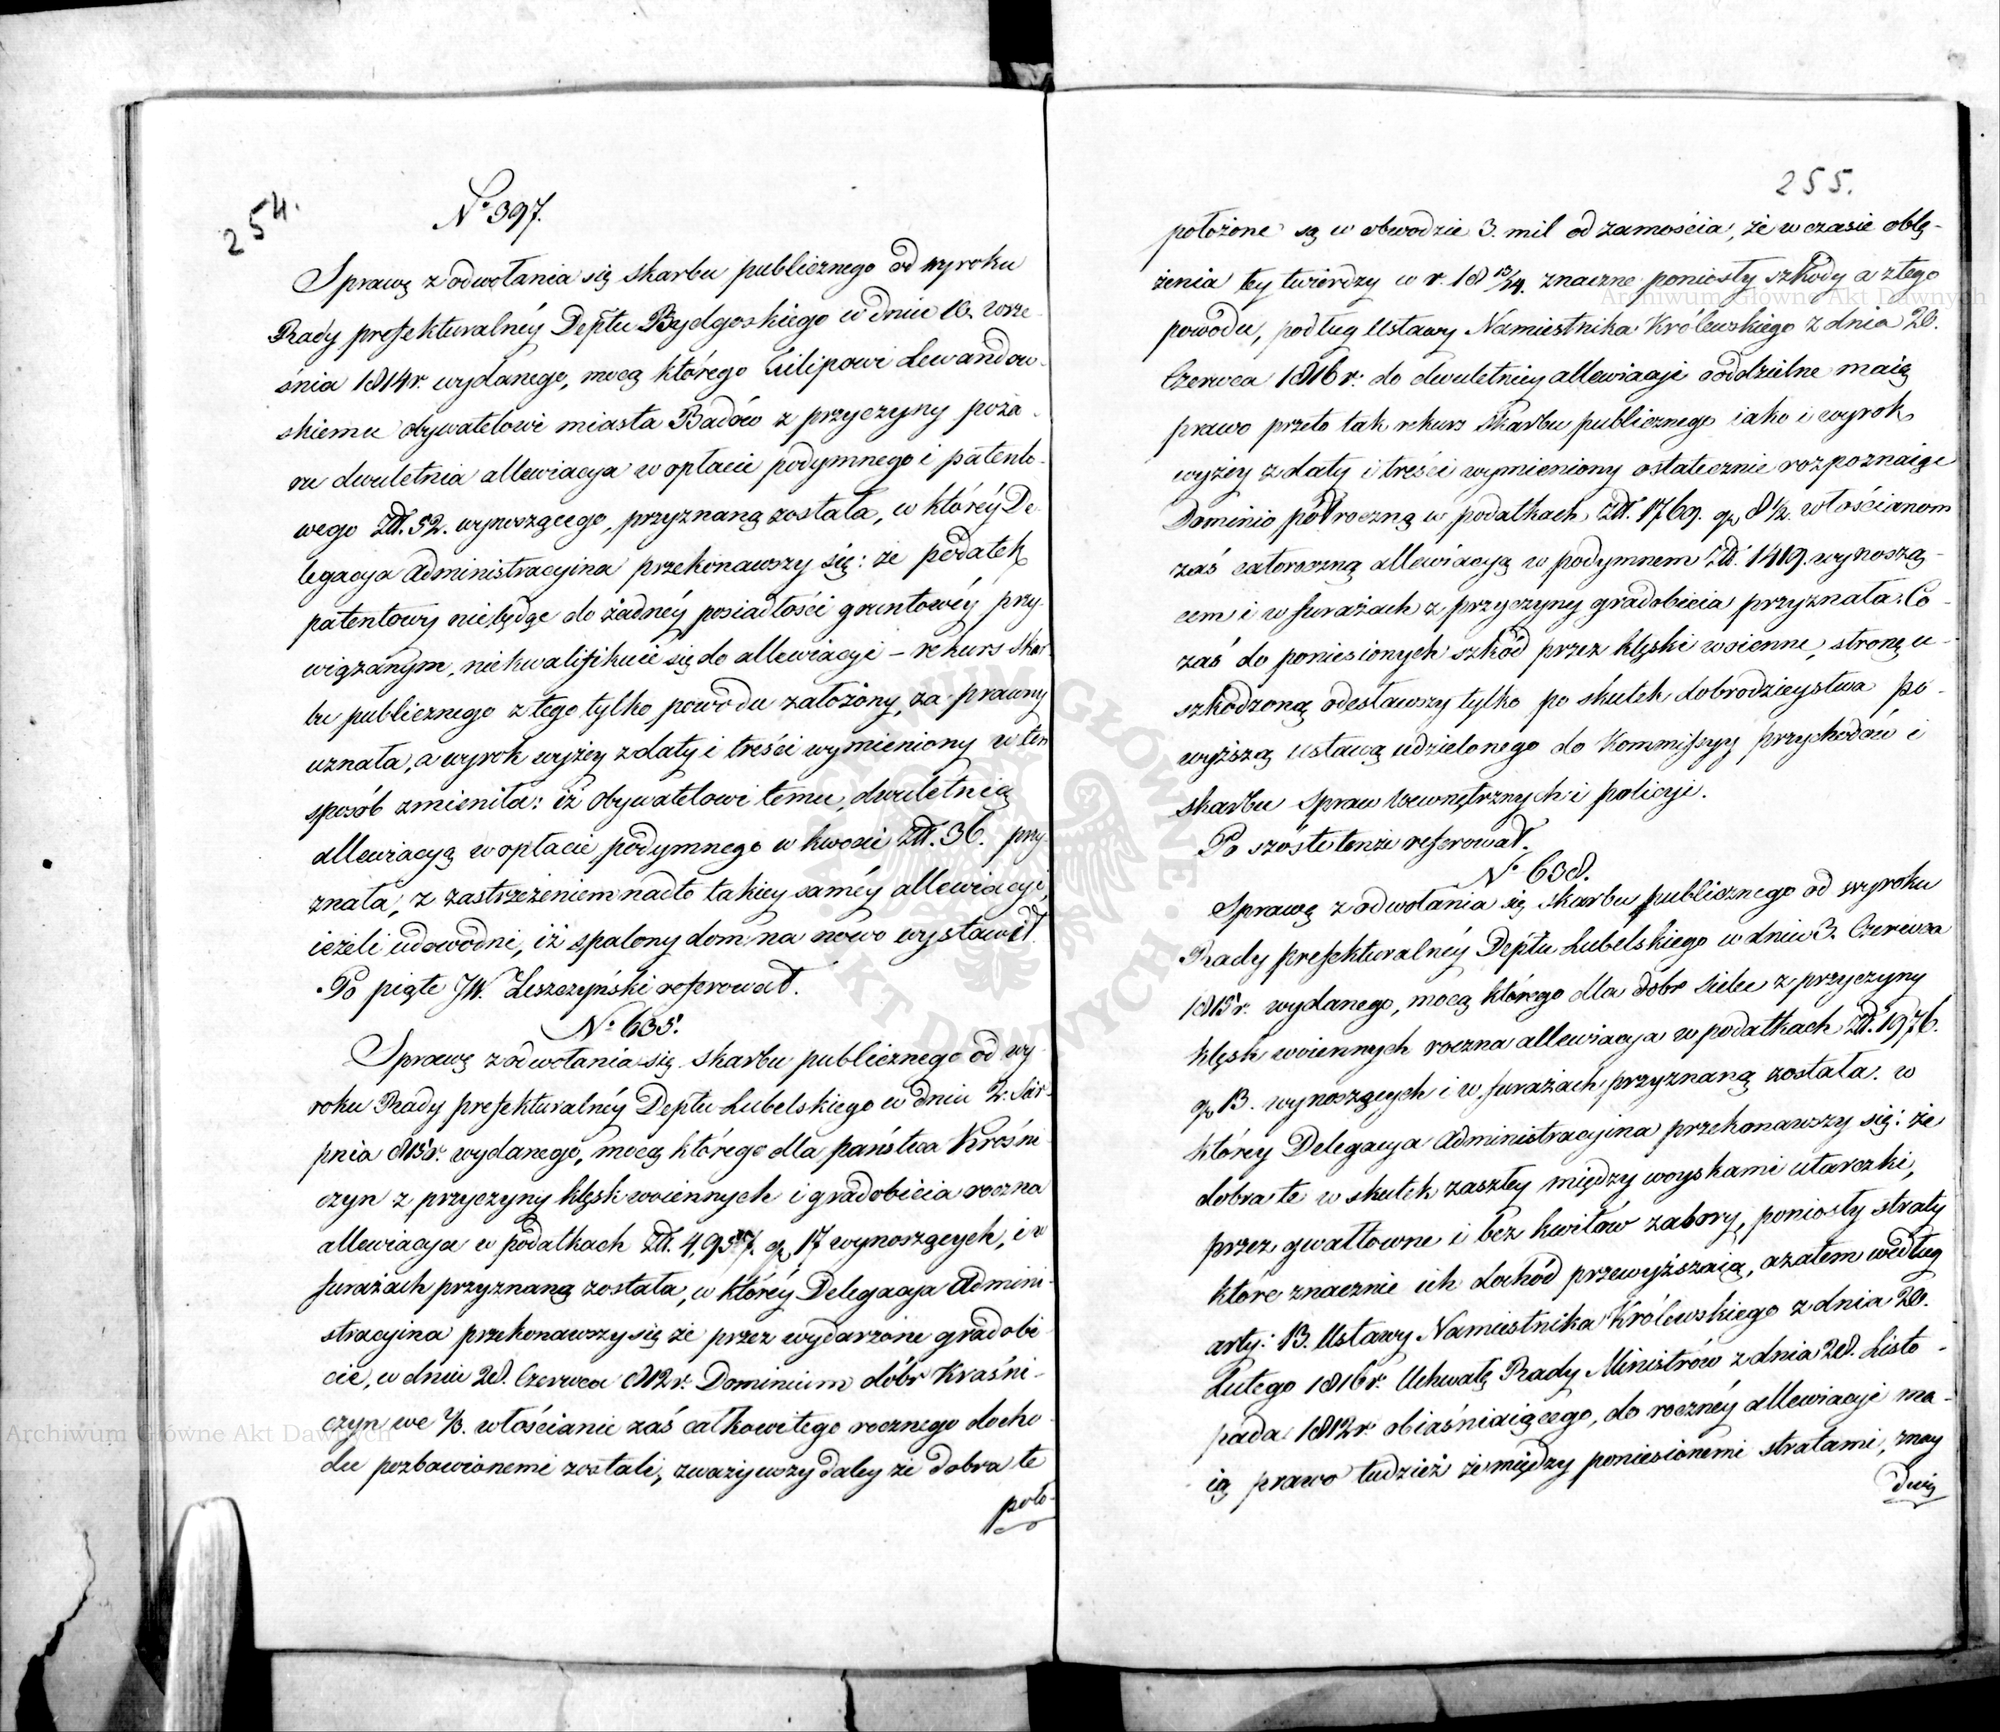 254.
No 397.
Sprawę z odwołania się Skarbu publicznego od wyroku
Rady prefekturalnéy Deptu Bydgoskiego w dniu 10. wrze-
śnia 1814r. wydanego, mocą którego Filipowi Lewandow-
skiemu obywatelowi miasta z przyczyny poża-
ru dwuletnia allewiacya w opłacie podymnego i patento-
wego Złł. 52. wynoszącego, przyznaną została, w któréy De-
legacya Administracyina przekonawszy się: że podatek
patentowy nie będąc do żadnéy posiadłości gruntowéy przy-
wiązanym, niekwalifikuie się do allewiacyi – rekurs Skar-
bu publicznego z tego tylko powodu założony, za prawny
uznała, a wyrok wyżey z daty i treści wymieniony w ten
sposób zmieniła: iż Obywatelowi temu dwuletnią
allewiacyą w opłacie podymnego w kwocie Złł. 36. przy-
znała, z zastrzeżeniem nadto takiey saméy allewiacyi,
ieżeli udowodni, iż spalony dom na nowo wystawił.
Po piąte JW. Leszczyński referował.
No 635.
Sprawę z odwołania się Skarbu publicznego od wy-
roku Rady prefekturalnéy Deptu Lubelskiego w dniu 2. Sier-
pnia 815r. wydanego, mocą którego dla państwa Kraśni-
czyn z przyczyny klęsk woiennych i gradobicia roczna
allewiacya w podatkach Złł. 4,957. gr 17 wynoszących, i w
furażach przyznaną została, w któréy Delegacya Admini-
stracyina przekonawszy się że przez wydarzone gradobi-
cie, w dniu 28. Czerwca 812r. Dominium dóbr Kraśni-
czyn we 2/3. włościanie zaś całkowitego rocznego docho-
du pozbawionemi zostali, zważywszy daley że dobra te
poło-
255.
położone są w obwodzie 3. mil od Zamościa, że w czasie oblę-
żenia tey twierdzy w r. 18 13/14. znaczne poniosły szkody a z tego
powodu, podług Ustawy Namiestnika Królewskiego z dnia 20.
Czerwca 1816r. do dwuletniey allewiacyi oddzielne maią
prawo przeto tak rekurs Skarbu publicznego iako i wyrok
wyżey z daty i treści wymieniony ostatecznie rozpoznaiąc
Dominio półroczną w podatkach Złł. 1769. gr 8 1/2. włościanom
zaś całoroczną allewiacyą w podymnem Złł. 1419. wynoszą-
cem i w furażach z przyczyny gradobicia przyznała. Co
zaś do poniesionych szkód przez klęski woienne, stronę u-
szkodzoną odesławszy tylko po skutek dobrodzieystwa po-
wyższą ustawą udzielonego do Kommissyy przychodów i
skarbu Spraw Wewnętrznych i policyi.
Po szóste tenże referował.
No 638.
Sprawę z odwołania się Skarbu publicznego od wyroku
Rady prefekturalnéy Deptu Lubelskiego w dniu 3. Czerwca
1815r. wydanego, mocą którego dla dóbr Sielec z przyczyny
klęsk woiennych roczna allewiacya w podatkach Złł. 1976.
gr 13. wynoszących i w furażach przyznaną została: w
którey Delegacya Administracyina przekonawszy się: że
dobra te w skutek zaszłey między woyskami utarczki,
przez gwałtowne i bez kwitów zabory, poniosły straty
które znacznie ich dochód przewyższaią, a zatem według
arty: 13. Ustawy Namiestnika Królewskiego z dnia 20.
Lutego 1816r. Uchwałę Rady Ministrów z dnia 28. Listo-
pada 1812r. obiaśniaiącego, do rocznéy allewiacyi ma-
ią prawo tudzież że między poniesionemi stratami, znay
duią